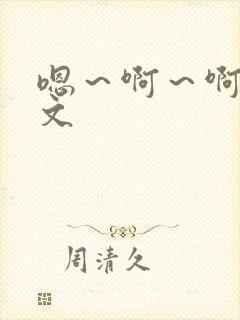 嗯～啊～啊
文
周清久